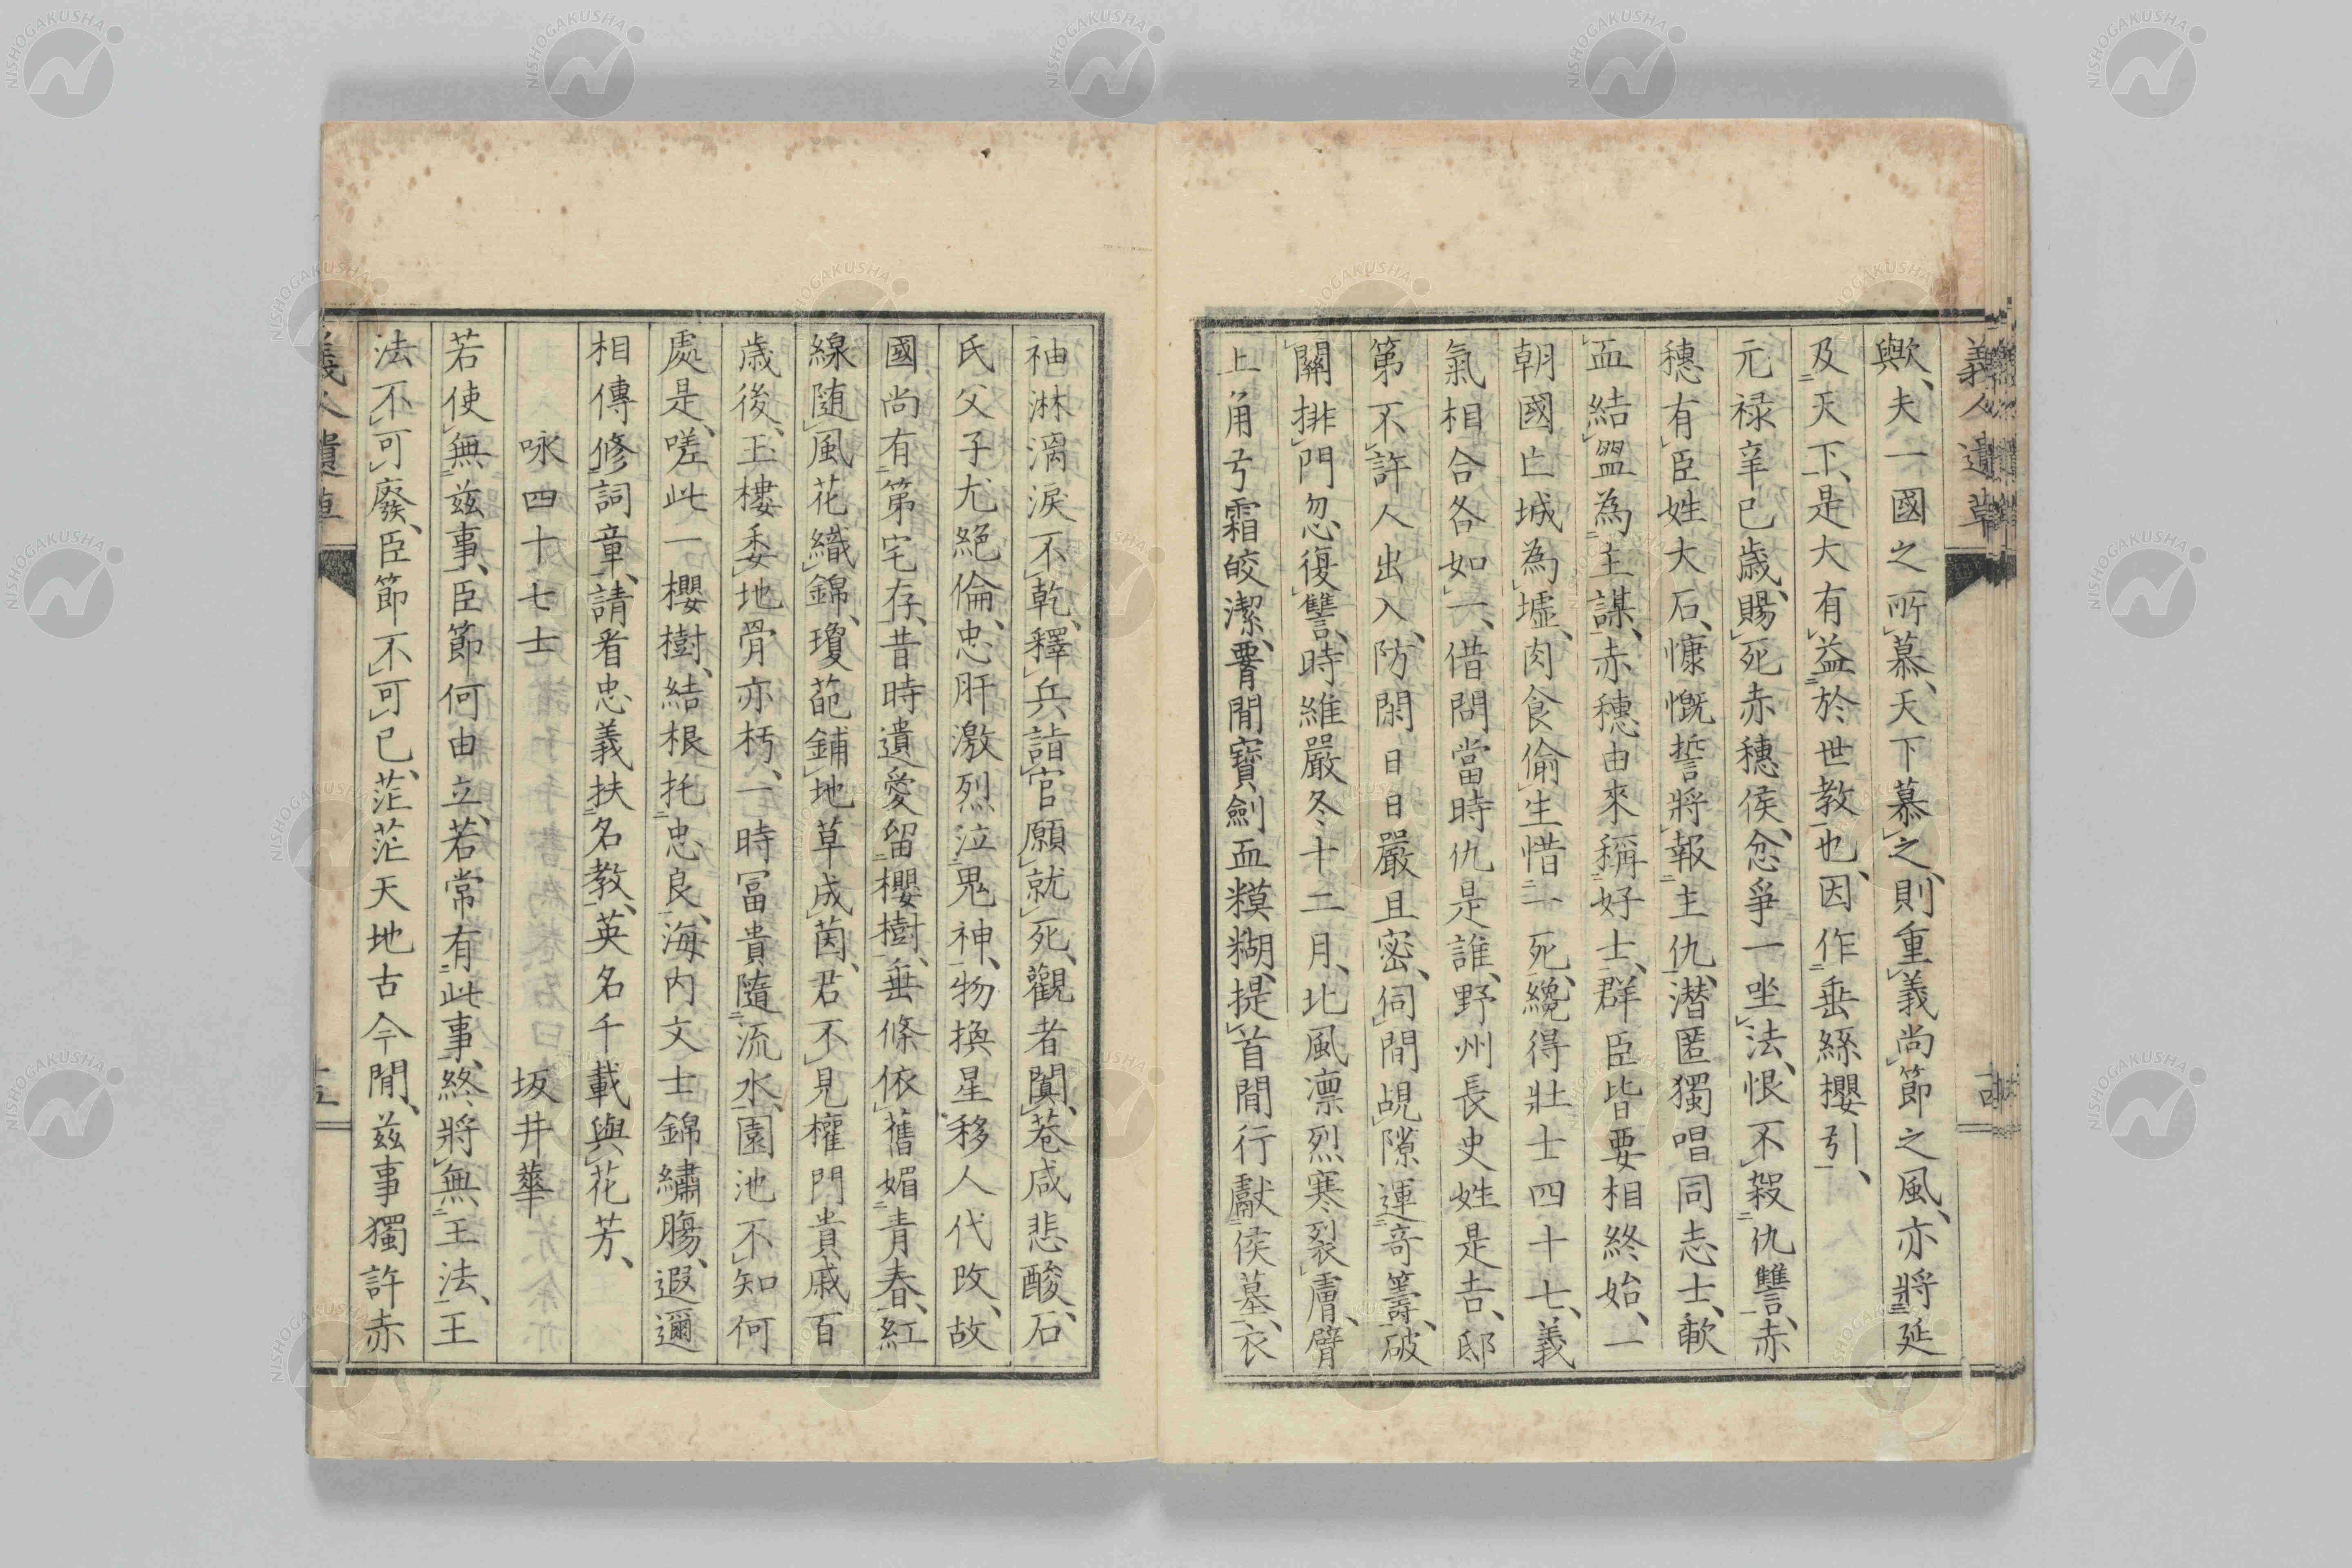 義人遺草
歟、夫一國之所慕、天下慕之、則重義尚節之風、亦將延
及天下、是大有益於世教也、因作垂絲櫻引、
元禄辛巳歳、賜死赤穗侯、忿爭一坐法、恨不殺仇讐、赤
穗有臣姓大石、慷慨誓將報主仇、潜匿獨唱同志士、歃
血結盟為主謀、赤穗由來稱好士、群臣皆要相終始、一
朝國亡城為墟、肉食偷生惜一死、纔得壯士四十七、義
氣相合各如一、借問當時仇是誰、野州長史姓是吉、邸
第不許人出入、防閑日日嚴且密、伺間覘隙運奇籌、破
關排門忽復讐、時維嚴冬十二月、北風凛烈寒裂膚、臂
上角弓霜皎潔、䐃間寶劍血糢糊、提首間行獻侯墓、衣
袖淋漓淚不乾、釋兵詣官願就死、觀者闐巷咸悲酸、石
氏父子尤絶倫、忠肝激烈泣鬼神、物換星移人代改、故
國尚有第宅存、昔時遺愛留櫻樹、垂條依舊媚青春、紅
線随風花織錦、瓊葩鋪地草成茵、君不見權門貴戚百
歳後、玉樓委地骨亦朽、一時冨貴隨流水、園池不知何
處是、嗟此一櫻樹、結根托忠良、海内文士錦繡膓、遐邇
相傳修詞章、請看忠義扶名教、英名千載與花芳、
咏四十七士　坂井華
若使無茲事、臣節何由立、若常有此事、終將無王法、王
法不可廢、臣節不可已、茫茫天地古今間、茲事獨許赤
義人遺草
NISHOGAKUSHA